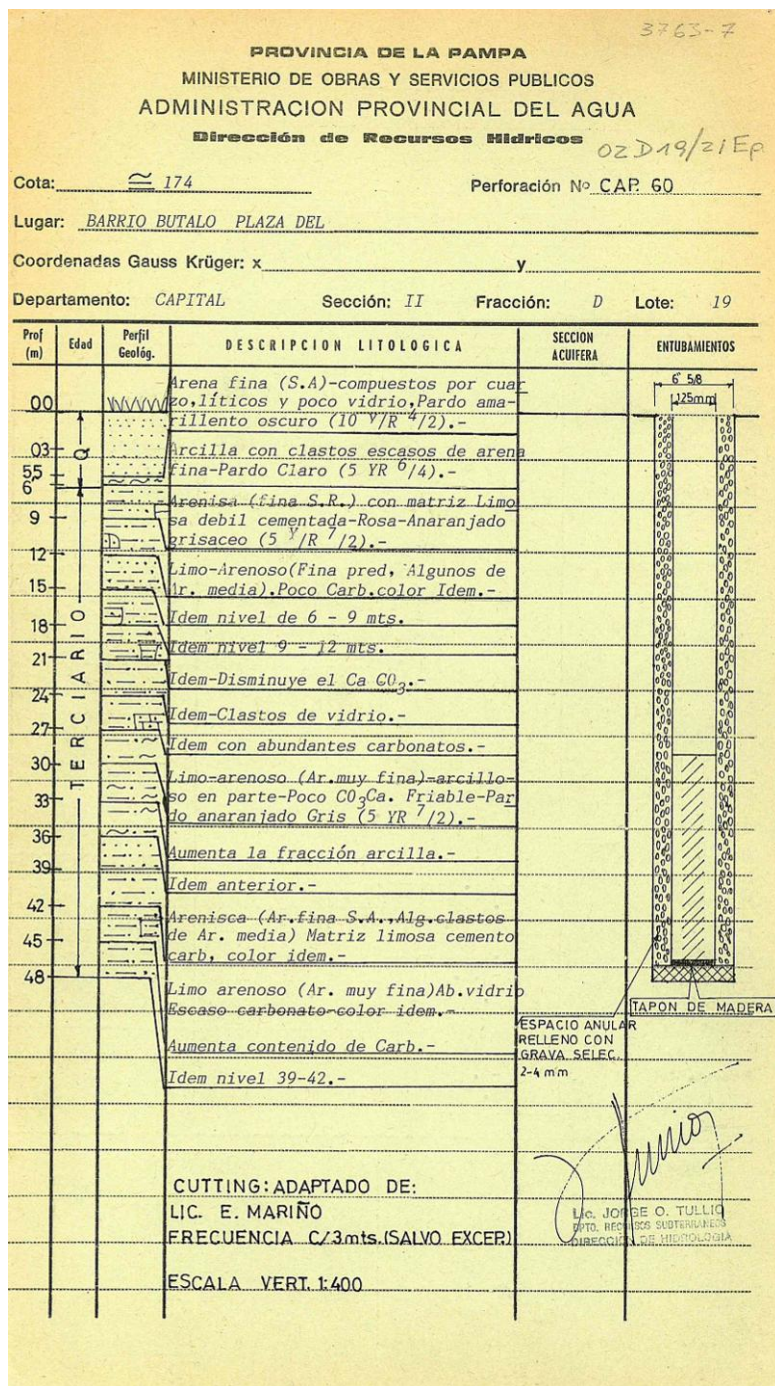 3763-7
PROVINCIA DE LA PAMPA
MINISTERIO DE OBRAS Y SERVICIOS PUBLICOS
ADMINISTRACION PROVINCIAL DEL AGUA
Dirección de Recursos Hídricos
02D19/21Ep
Cota: ≅ 174 Perforación Nº CAP. 60
Lugar: BARRIO BUTALO PLAZA DEL
Coordenadas Gauss Krüger: x y
Departamento: CAPITAL Sección: II Fracción: D Lote: 19
Prof (m) Edad Perfil Geológ. DESCRIPCION LITOLOGICA SECCION ACUIFERA ENTUBAMIENTOS
6" 5/8
125mm
00
03
55
6
9
12
15
18
21
24
27
30
33
36
39
42
45
48
Q
TERCIARIO
Arena fina (S.A)-compuestos por cuar
zo,líticos y poco vidrio,Pardo ama-
rillento oscuro (10 Y/R 4/2).-
Arcilla con clastos escasos de arena
fina-Pardo Claro (5 YR 6/4).-
Arenisa (fina S.R.) con matriz Limo
sa debil cementada-Rosa-Anaranjado
grisaceo (5 Y/R 7/2).-
Limo-Arenoso(Fina pred, Algunos de
Ar. media).Poco Carb.color Idem.-
Idem nivel de 6 - 9 mts.
Idem nivel 9 - 12 mts.
Idem-Disminuye el Ca CO3.-
Idem-Clastos de vidrio.-
Idem con abundantes carbonatos.-
Limo-arenoso (Ar.muy fina)-arcillo-
so en parte-Poco CO3Ca. Friable-Par
do anaranjado Gris (5 YR 7/2).-
Aumenta la fracción arcilla.-
Idem anterior.-
Arenisca (Ar.fina S.A.,Alg.clastos
de Ar. media) Matriz limosa cemento
carb, color idem.-
Limo arenoso (Ar. muy fina)Ab.vidrio
Escaso carbonato-color idem.-
Aumenta contenido de Carb.-
Idem nivel 39-42.-
TAPON DE MADERA
ESPACIO ANULAR
RELLENO CON
GRAVA SELEC.
2-4 mm
CUTTING: ADAPTADO DE:
LIC. E. MARIÑO
FRECUENCIA C/3mts.(SALVO EXCEP.)
ESCALA VERT. 1:400
Lic. JORGE O. TULLIO
DPTO. RECURSOS SUBTERRANEOS
DIRECCION DE HIDROLOGIA